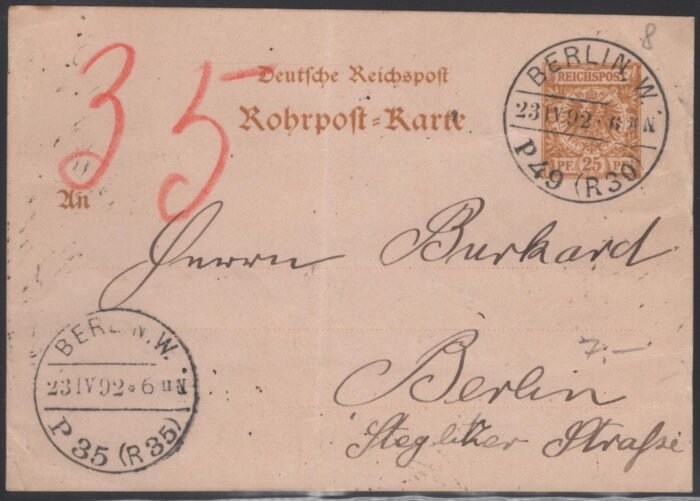 8
35
Deutsche Reichspost
Rohrpost-Karte
BERLIN. W.
23 IV 92 * 6 II N
P 49 (R 30)
REICHSPOST
PF. 25 PF.
An
Herrn Burkard
Berlin
7.-
Steglitzer Straße
BERLIN. W.
23 IV 92 * 6 II N
P 35 (R 35)